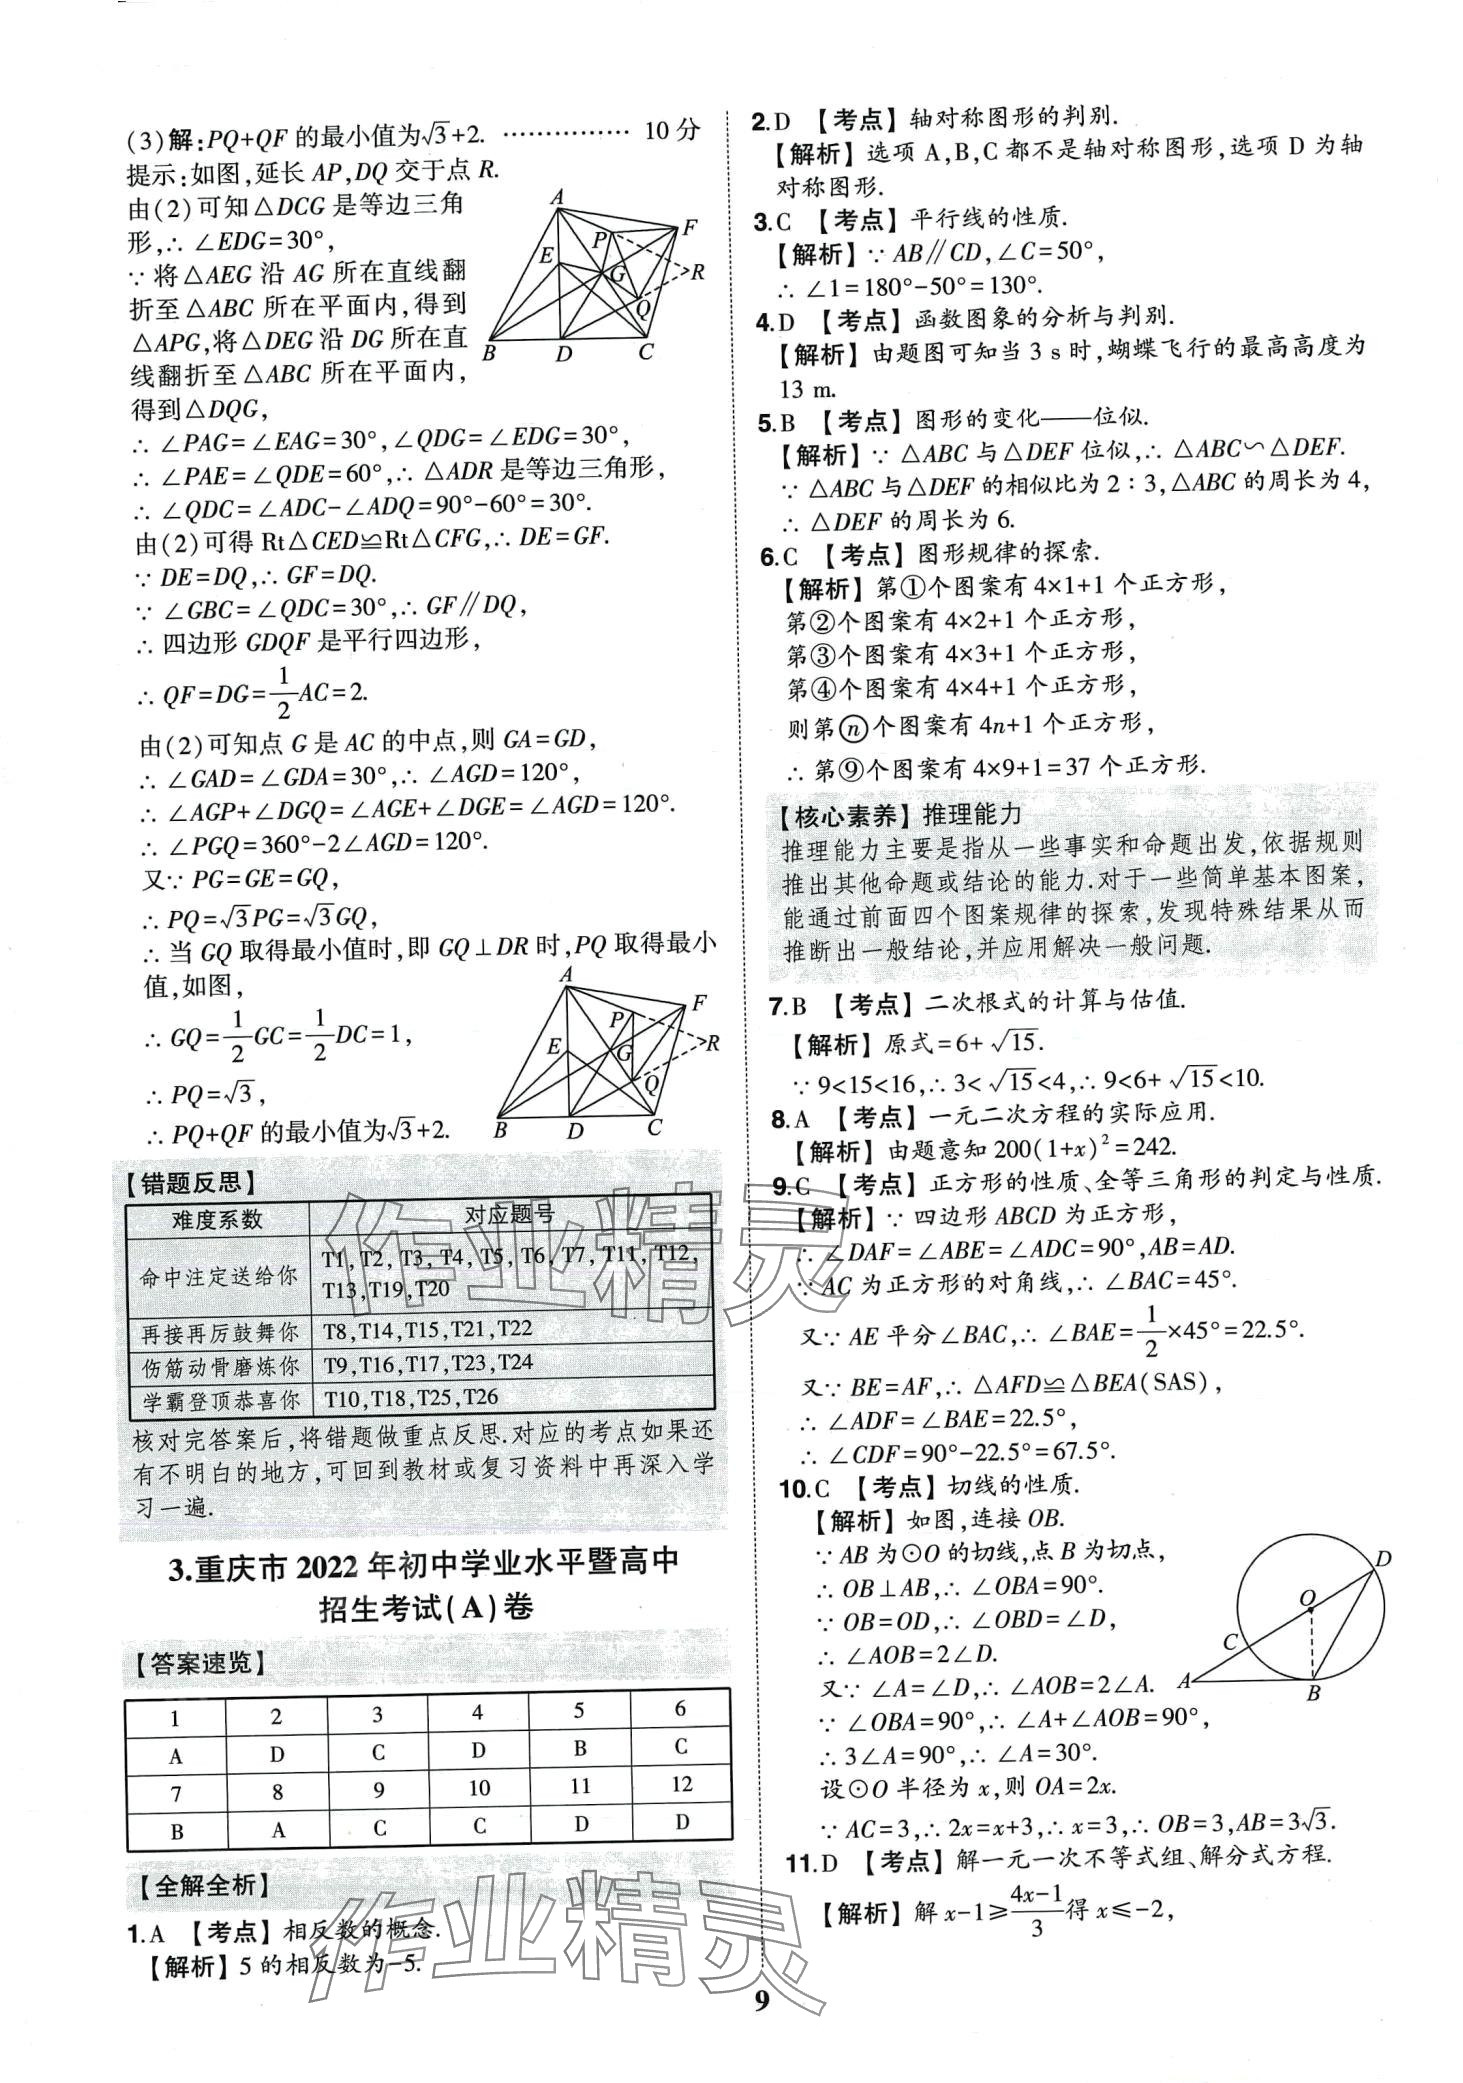 (3)解:PQ+QF 的最小值为√3+2. …………… 10 分
提示:如图,延长 AP,DQ 交于点 R.
由(2)可知△DCG 是等边三角
形,∴ ∠EDG=30°,
∵ 将△AEG 沿 AG 所在直线翻
折至△ABC 所在平面内,得到
△APG,将△DEG 沿 DG 所在直
线翻折至△ABC 所在平面内,
得到△DQG,
A
F
P
E
G
R
Q
B
D
C
∴ ∠PAG=∠EAG=30°,∠QDG=∠EDG=30°,
∴ ∠PAE=∠QDE=60°,∴ △ADR 是等边三角形,
∴ ∠QDC=∠ADC-∠ADQ=90°-60°=30°.
由(2)可得 Rt△CED≌Rt△CFG,∴ DE=GF.
∵ DE=DQ,∴ GF=DQ.
∵ ∠GBC=∠QDC=30°,∴ GF∥DQ,
∴ 四边形 GDQF 是平行四边形,
∴ QF=DG=1/2AC=2.
由(2)可知点 G 是 AC 的中点,则 GA=GD,
∴ ∠GAD=∠GDA=30°,∴ ∠AGD=120°,
∴ ∠AGP+∠DGQ=∠AGE+∠DGE=∠AGD=120°.
∴ ∠PGQ=360°-2∠AGD=120°.
又∵ PG=GE=GQ,
∴ PQ=√3PG=√3GQ,
∴ 当 GQ 取得最小值时,即 GQ⊥DR 时,PQ 取得最小
值,如图,
∴ GQ=1/2GC=1/2DC=1,
∴ PQ=√3,
∴ PQ+QF 的最小值为√3+2.
A
F
P
E
G
R
Q
B
D
C
【错题反思】
难度系数 对应题号
命中注定送给你 T1,T2,T3,T4,T5,T6,T7,T11,T12,
T13,T19,T20
再接再厉鼓舞你 T8,T14,T15,T21,T22
伤筋动骨磨炼你 T9,T16,T17,T23,T24
学霸登顶恭喜你 T10,T18,T25,T26
核对完答案后,将错题做重点反思.对应的考点如果还
有不明白的地方,可回到教材或复习资料中再深入学
习一遍.
作业精灵
3.重庆市 2022 年初中学业水平暨高中
招生考试(A)卷
【答案速览】
1 2 3 4 5 6
A D C D B C
7 8 9 10 11 12
B A C C D D
【全解全析】
1.A 【考点】相反数的概念.
【解析】5 的相反数为-5.
作业精灵
2.D 【考点】轴对称图形的判别.
【解析】选项 A,B,C 都不是轴对称图形,选项 D 为轴
对称图形.
3.C 【考点】平行线的性质.
【解析】∵ AB∥CD,∠C=50°,
∴ ∠1=180°-50°=130°.
4.D 【考点】函数图象的分析与判别.
【解析】由题图可知当 3 s 时,蝴蝶飞行的最高高度为
13 m.
5.B 【考点】图形的变化——位似.
【解析】∵ △ABC 与△DEF 位似,∴ △ABC∽△DEF.
∵ △ABC 与△DEF 的相似比为 2∶3,△ABC 的周长为 4,
∴ △DEF 的周长为 6.
6.C 【考点】图形规律的探索.
【解析】第①个图案有 4×1+1 个正方形,
第②个图案有 4×2+1 个正方形,
第③个图案有 4×3+1 个正方形,
第④个图案有 4×4+1 个正方形,
则第ⓝ个图案有 4n+1 个正方形,
∴ 第⑨个图案有 4×9+1=37 个正方形.
【核心素养】推理能力
推理能力主要是指从一些事实和命题出发,依据规则
推出其他命题或结论的能力.对于一些简单基本图案,
能通过前面四个图案规律的探索,发现特殊结果从而
推断出一般结论,并应用解决一般问题.
7.B 【考点】二次根式的计算与估值.
【解析】原式=6+√15.
∵ 9<15<16,∴ 3<√15<4,∴ 9<6+√15<10.
8.A 【考点】一元二次方程的实际应用.
【解析】由题意知 200(1+x)²=242.
9.C 【考点】正方形的性质、全等三角形的判定与性质.
【解析】∵ 四边形 ABCD 为正方形,
∴ ∠DAF=∠ABE=∠ADC=90°,AB=AD.
∵ AC 为正方形的对角线,∴ ∠BAC=45°.
又∵ AE 平分∠BAC,∴ ∠BAE=1/2×45°=22.5°.
又∵ BE=AF,∴ △AFD≌△BEA(SAS),
∴ ∠ADF=∠BAE=22.5°,
∴ ∠CDF=90°-22.5°=67.5°.
10.C 【考点】切线的性质.
【解析】如图,连接 OB.
∵ AB 为⊙O 的切线,点 B 为切点,
∴ OB⊥AB,∴ ∠OBA=90°.
∵ OB=OD,∴ ∠OBD=∠D,
∴ ∠AOB=2∠D.
又∵ ∠A=∠D,∴ ∠AOB=2∠A.
∵ ∠OBA=90°,∴ ∠A+∠AOB=90°,
∴ 3∠A=90°,∴ ∠A=30°.
设⊙O 半径为 x,则 OA=2x.
∵ AC=3,∴ 2x=x+3,∴ x=3,∴ OB=3,AB=3√3.
D
O
C
A
B
11.D 【考点】解一元一次不等式组、解分式方程.
【解析】解 x-1≥(4x-1)/3得 x≤-2,
9